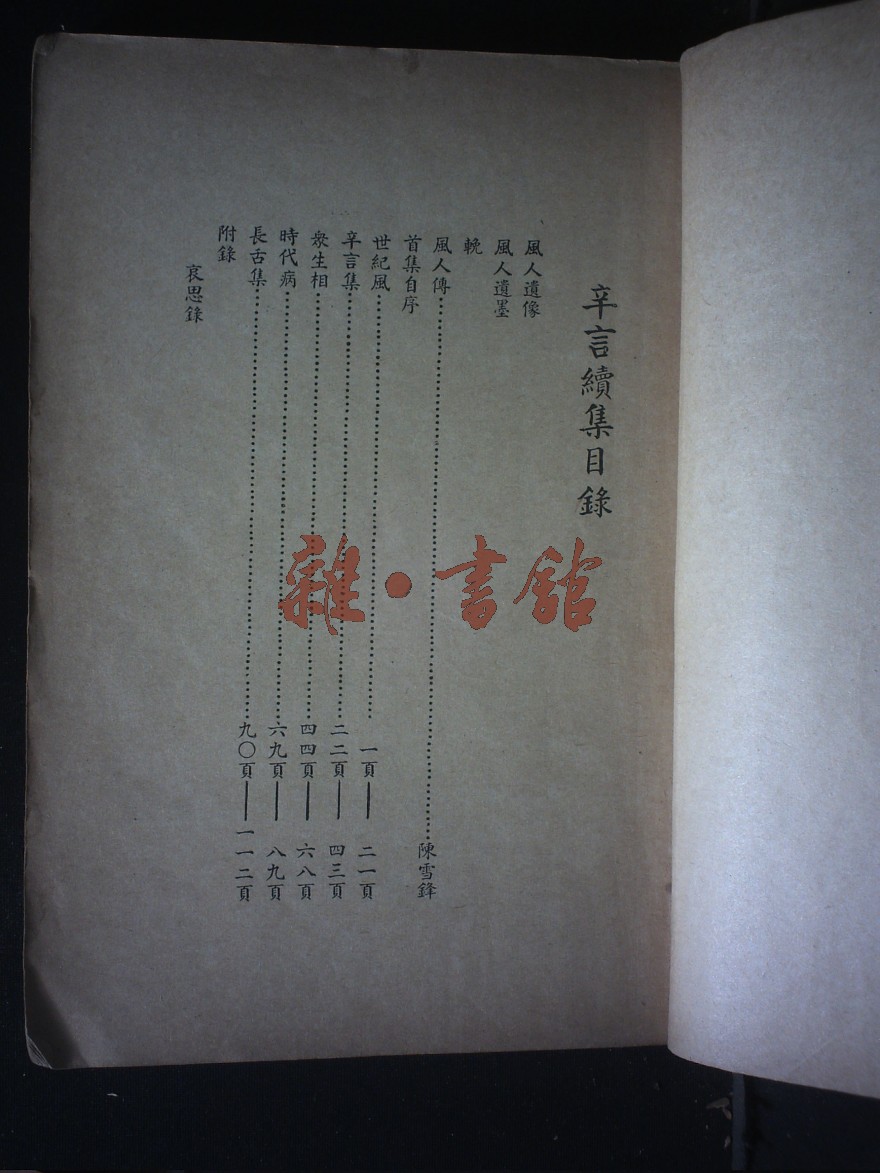 辛言續集目錄
風人遺像
風人遺墨
輓
風人傳……陳雪鋒
首集自序
世紀風……一頁——二一頁
辛言集……二二頁——四三頁
衆生相……四四頁——六八頁
時代病……六九頁——八九頁
長舌集……九〇頁——一一二頁
附錄
哀思錄
雜·書館